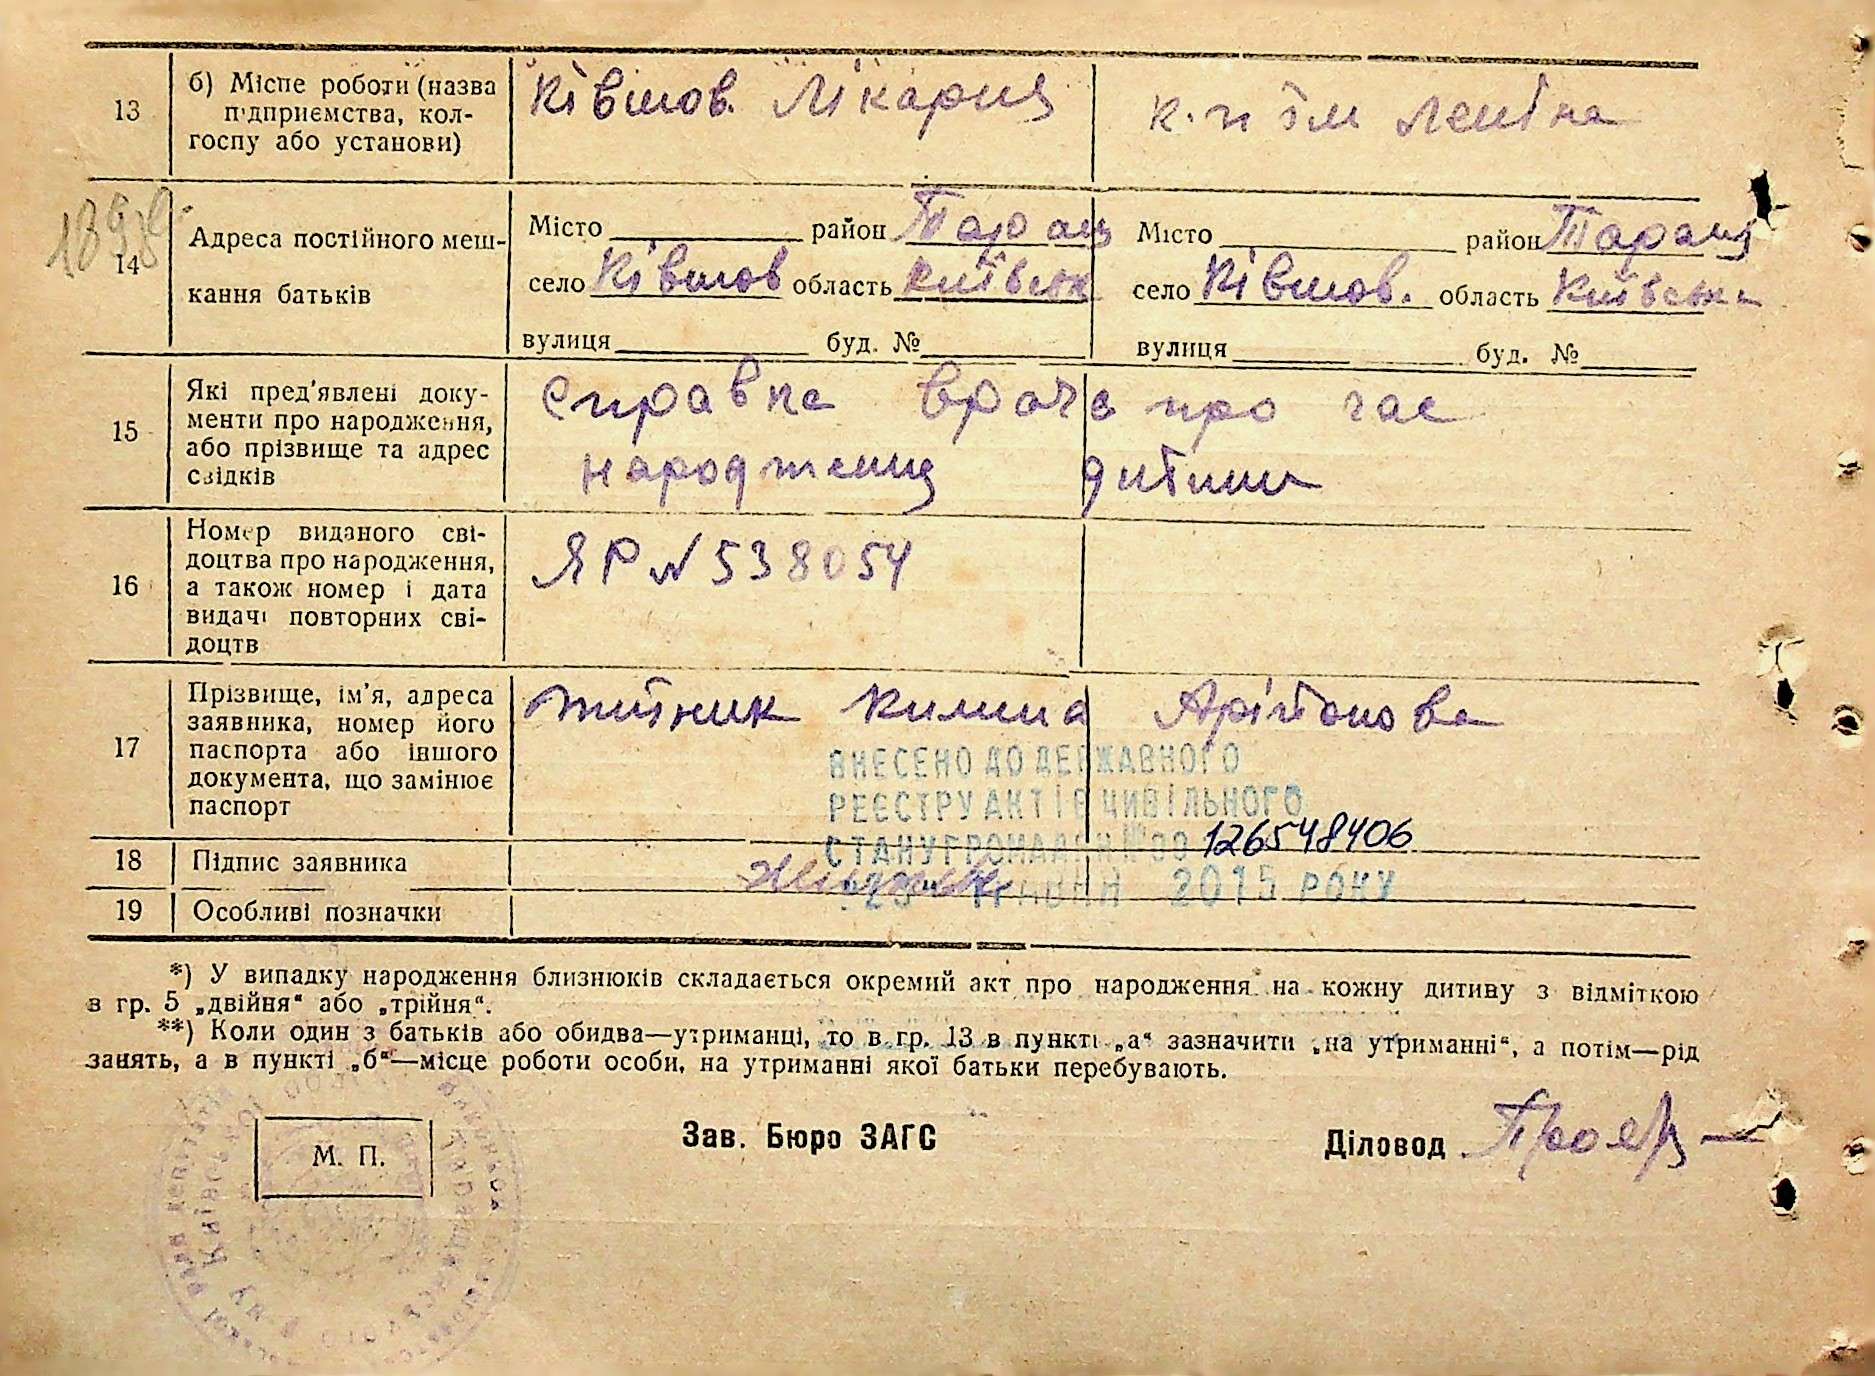 13
б) Місце роботи (назва підприємства, колгоспу або установи)
Ківшов. Лікарня
к-п ім Леніна
14
Адреса постійного мешкання батьків
Місто район Таращ
село Ківшов область Київськ
вулиця буд. №
Місто район Таращ
село Ківшов. область Київська
вулиця буд. №
15
Які пред'явлені документи про народження, або прізвище та адрес свідків
Справка врача про час
народження дитини
16
Номер виданого свідоцтва про народження, а також номер і дата видачі повторних свідоцтв
ЯР № 538054
17
Прізвище, ім'я, адреса заявника, номер його паспорта або іншого документа, що замінює паспорт
Житник Килина
ВНЕСЕНО ДО ДЕРЖАВНОГО
РЕЄСТРУ АКТІВ ЦИВІЛЬНОГО
СТАНУ ГРОМАДЯН № 00126548406
2015 РОКУ
18
Підпис заявника
19
Особливі позначки
*) У випадку народження близнюків складається окремий акт про народження на кожну дитину з відміткою
в гр. 5 „двійня“ або „трійня“.
**) Коли один з батьків або обидва—утриманці, то в гр. 13 в пункті „а“ зазначити „на утриманні“, а потім—рід
занять, а в пункті „б“—місце роботи особи, на утриманні якої батьки перебувають.
М. П.
Зав. Бюро ЗАГС
Діловод